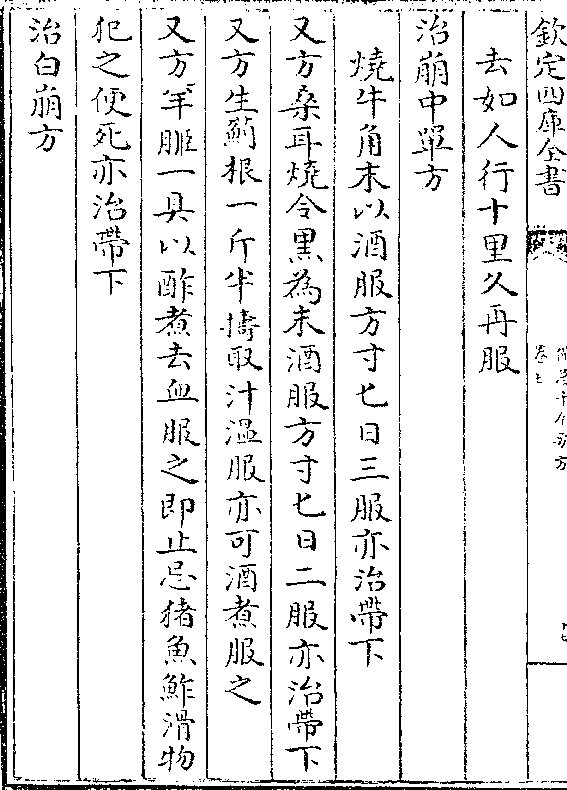 欽定四庫全書
去如人行十里久再服
治崩中單方
燒牛角末以酒服方寸匕日三服亦治帶下
又方桑耳燒令黑為末酒服方寸匕日二服亦治帶下
又方生薊根一斤半擣取汁温服亦可酒煮服之
又方羊胵一具以酢煮去血服之即止忌猪魚鮓滑物
犯之便死亦治帶下
治白崩方